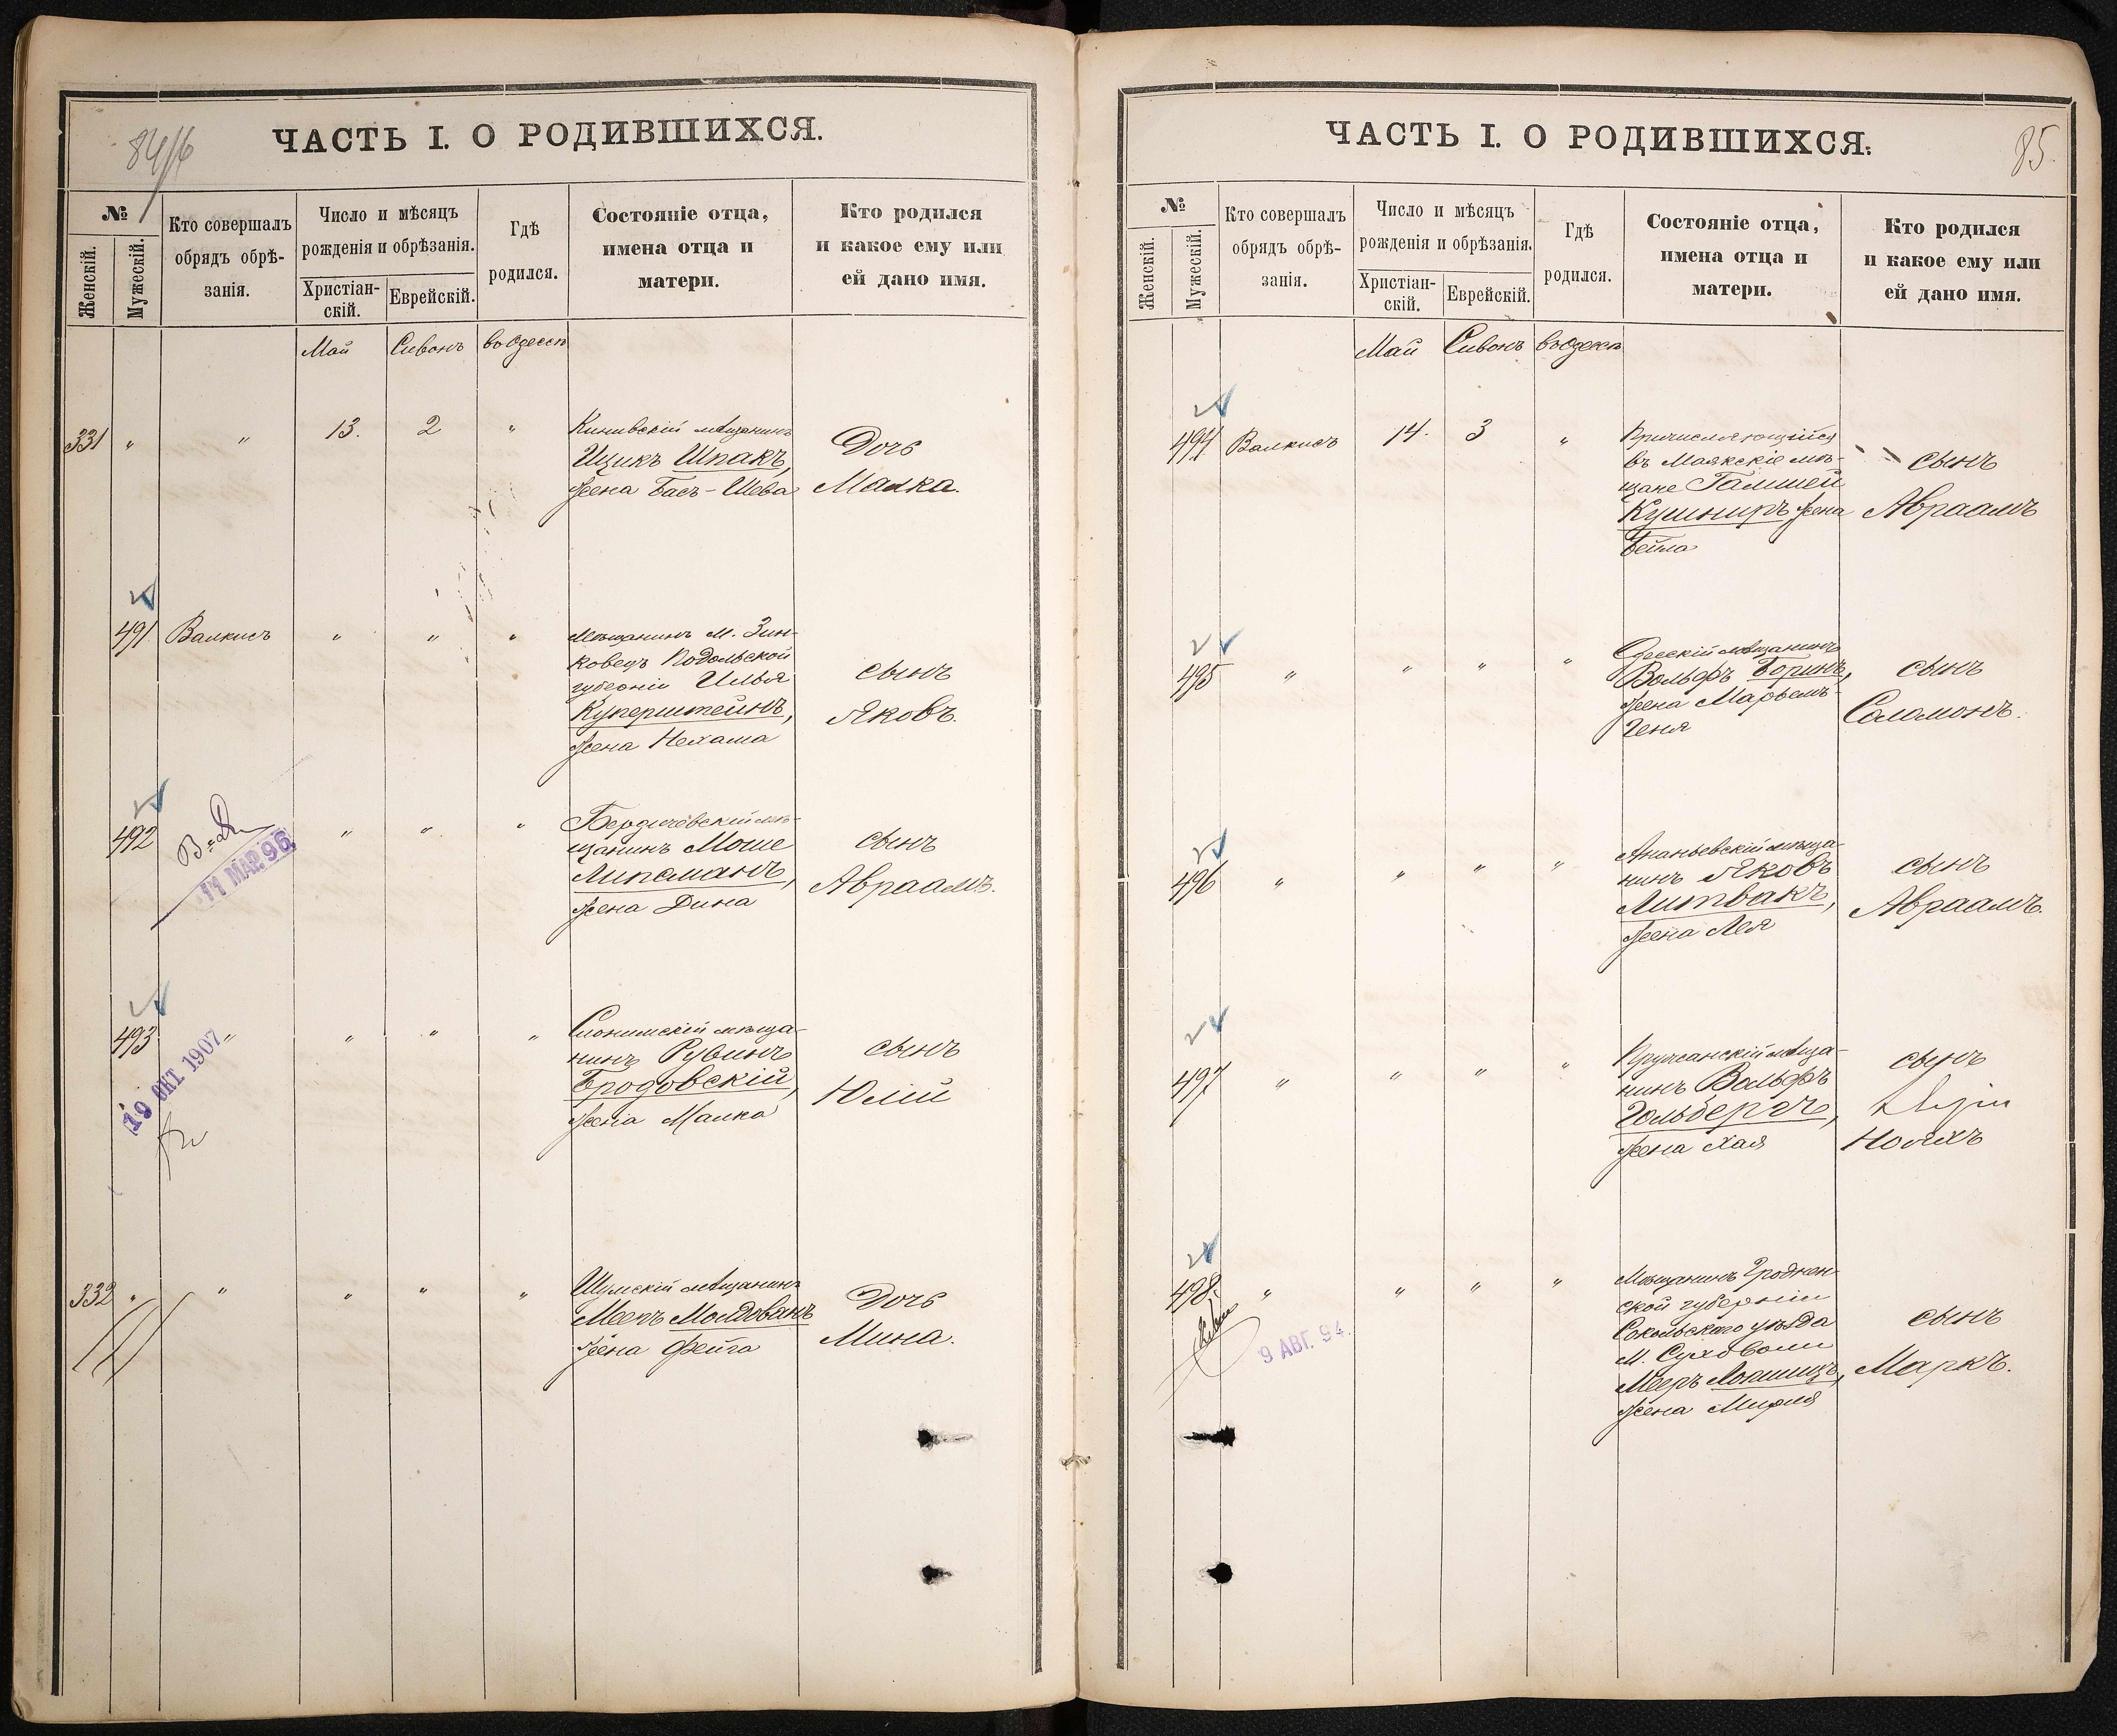 84
ЧАСТЬ I. О РОДИВШИХСЯ.
№
Женскій.
Мужескій.
Кто совершалъ
обрядъ обрѣ-
занія.
Число и мѣсяцъ
рожденія и обрѣзанія.
Христіан-
скій.
Еврейскій.
Гдѣ
родился.
Состояніе отца,
имена отца и
матери.
Кто родился
и какое ему или
ей дано имя.
Май Сивонъ въ Одессѣ
331 " " 13. 2 "
мѣщанинъ
Ицикъ Шпакъ,
жена Бась-Шева
Дочь
Малка.
491 Валкисъ " " "
Мѣщанинъ м. Зин-
ковецъ Подольской
губерніи Илья
Куперштейнъ,
жена Нехама
сынъ
Яковъ.
492 " " "
11 МАР. 96
Бердичевскій мѣ-
щанинъ Моше
Липсманъ,
жена Дина
сынъ
Авраамъ.
493 " " " "
19 ОКТ 1907
Слонимскій мѣща-
нинъ Рувинъ
Бродовскій,
жена Малка
сынъ
Юлій
332 " " " " "
Шумскій мѣщанинъ
Мееръ Молдованъ
жена Фейга
Дочь
Мина.
85.
ЧАСТЬ I. О РОДИВШИХСЯ.
№
Женскій.
Мужескій.
Кто совершалъ
обрядъ обрѣ-
занія.
Число и мѣсяцъ
рожденія и обрѣзанія.
Христіан-
скій.
Еврейскій.
Гдѣ
родился.
Состояніе отца,
имена отца и
матери.
Кто родился
и какое ему или
ей дано имя.
Май Сивонъ въ Одессѣ
494 Валкисъ 14. 3 "
Причисляющійся
въ Маякскіе мѣ-
щане
Кушниръ жена
Бейла
сынъ
Авраамъ
495 " " " "
Одесскій мѣщанинъ
Вольфъ Боринъ,
жена Марьемъ-
Геня
сынъ
Соломонъ.
496 " " " "
Ананьевскій мѣща-
нинъ Яковъ
Литвакъ,
жена Лея
сынъ
Авраамъ.
497 " " " "
Пружанскій мѣща-
нинъ Вольфъ
Гольдбергъ,
жена Хая
сынъ
Нояхъ
498. " " " "
9 АВГ. 94.
Мѣщанинъ Гроднен-
ской губерніи
Сокольскаго уѣзда
м. Суховоли
Мееръ Лапшицъ,
жена Мирля
сынъ
Маркъ.